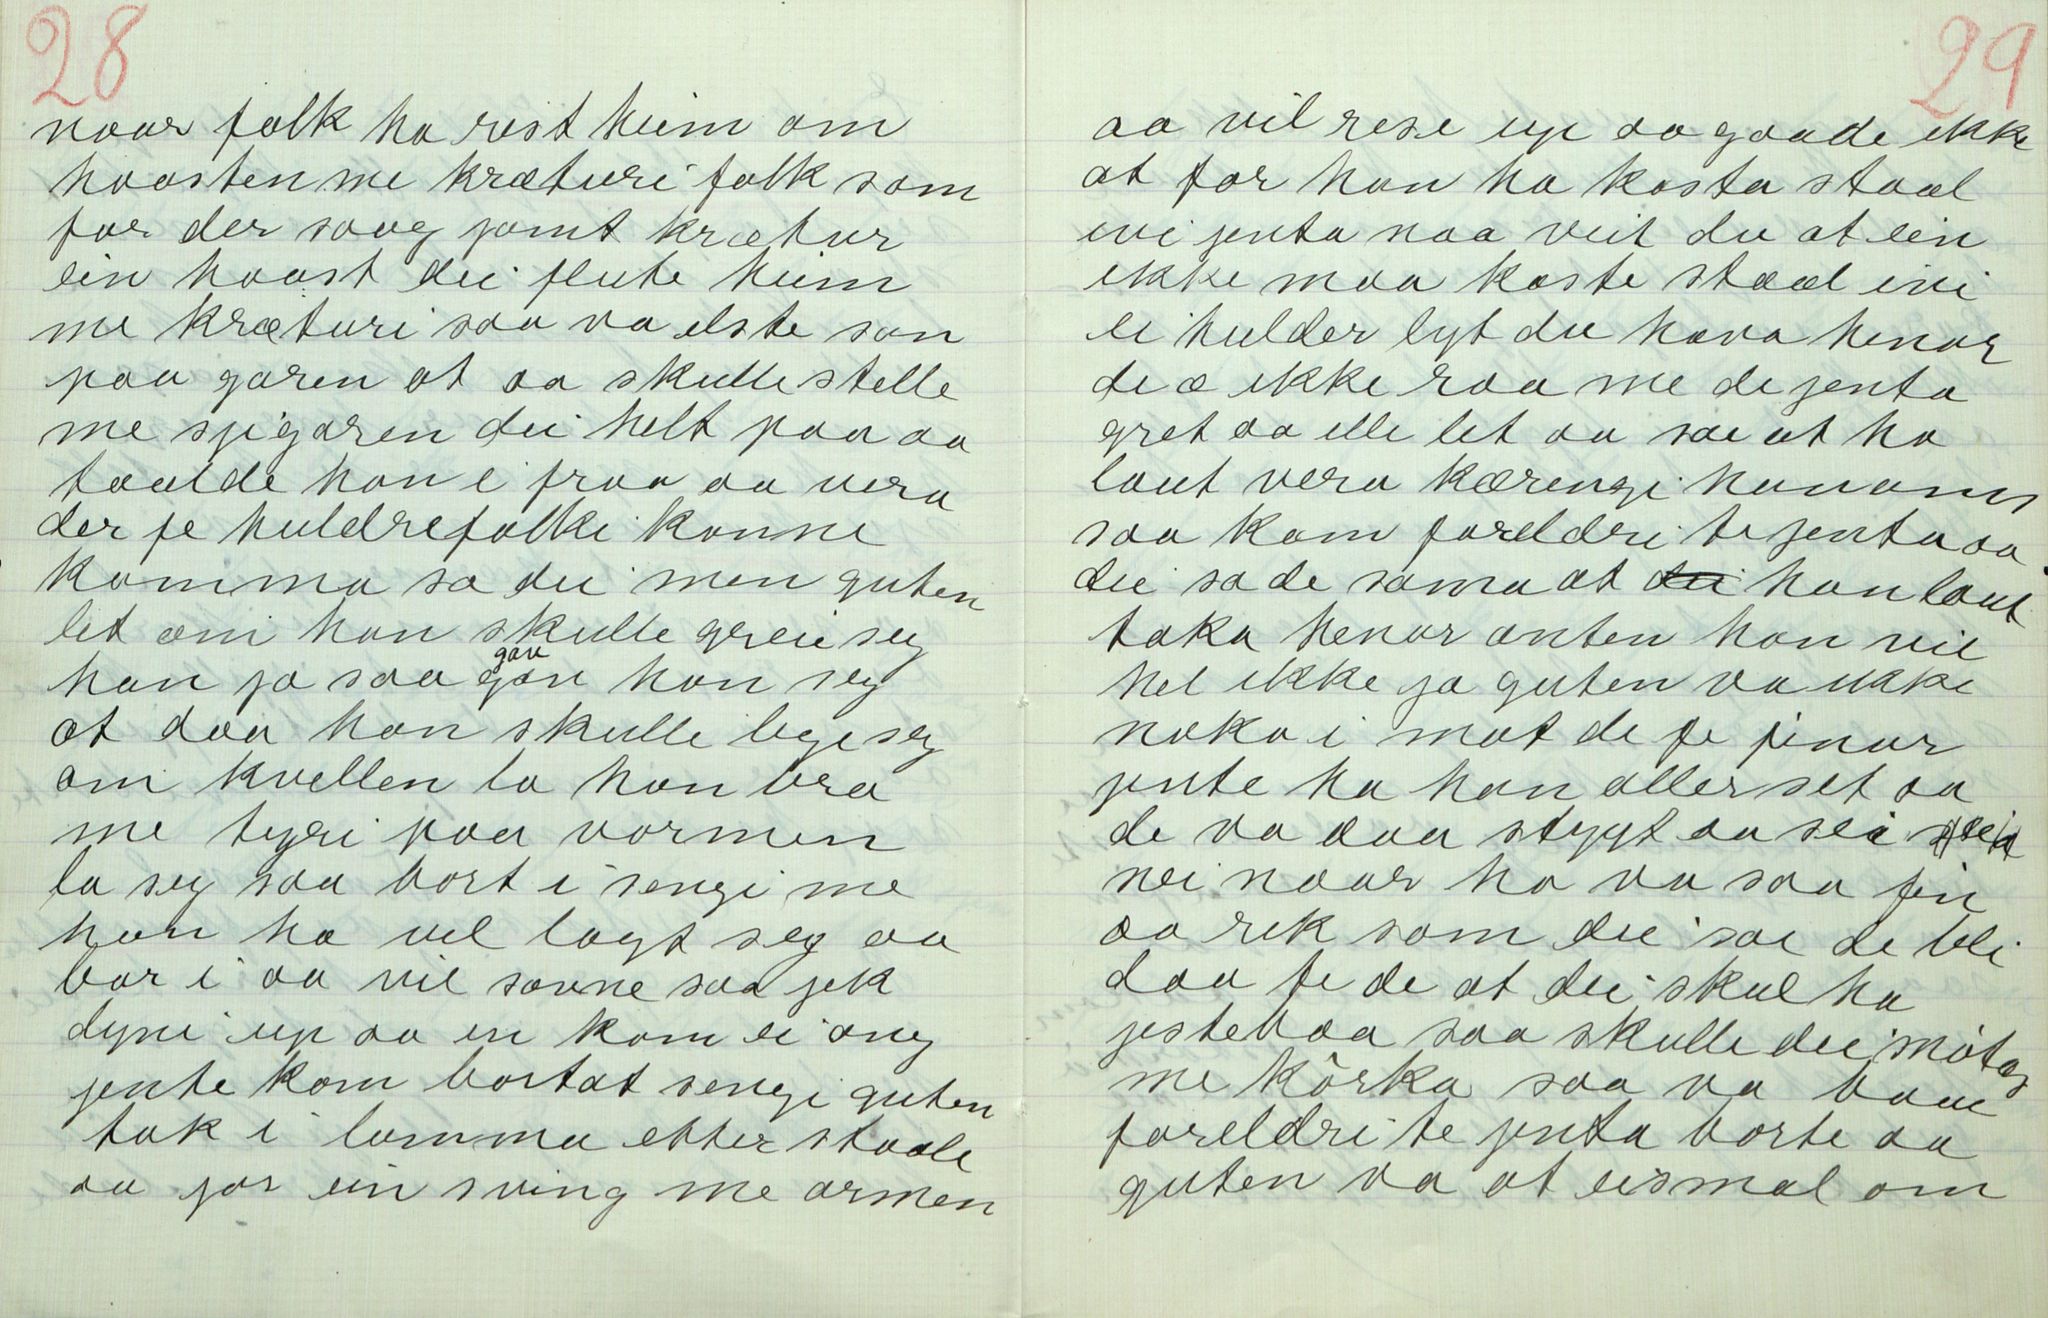 28
naar folk ha rest heim om
haasten me kræturi folk som
for der saag jamt krætur
ein haast dei flute heim
me kræturi saa va elste son
paa garen at aa skulle stelle
me spigaren dei helt paa aa
taalde han i fraa aa vera
der fe huldrefolki konne
komma sa dei men guten
let om han skulle greie seg
han ja saa gav han seg
at daa han skulle legeseg
om kvellen la han bra
me tyri paa varmen
la seg saa bort i sengi me
han ha vel lagt seg aa
bar i aa vil sovne saa jek
dyni up aa en kom ei ong
jente kom bortat sengi guten
tok i lomma etter staale
aa jor ein sving me armen
29
aa vil rese up aa gaade ikke
at for han ha kasta staal
ivi jenta naa veit du at ein
ikke maa kaste staal ivi
ei hulder lyt du hava henar
de æ ikke raa me de jenta
gret aa ille let aa sae at ho
laut vera kærengi hanoms
saa kom foreldri te jenta aa
dei sa de sama at dei han laut
taka henar anten han vil
hel ikke ja guten va ikke
noko i mot de fe finar
jente ha han aller set aa
de va daa stygt aa sei
nei naar ho va saa fin
aa rik som dei sae de blei
daa te de at dei skul ha
jestebaa saa skulle dei møtas
me kørka saa va baae
foreldri te jenta borte aa
guten va at eismal om